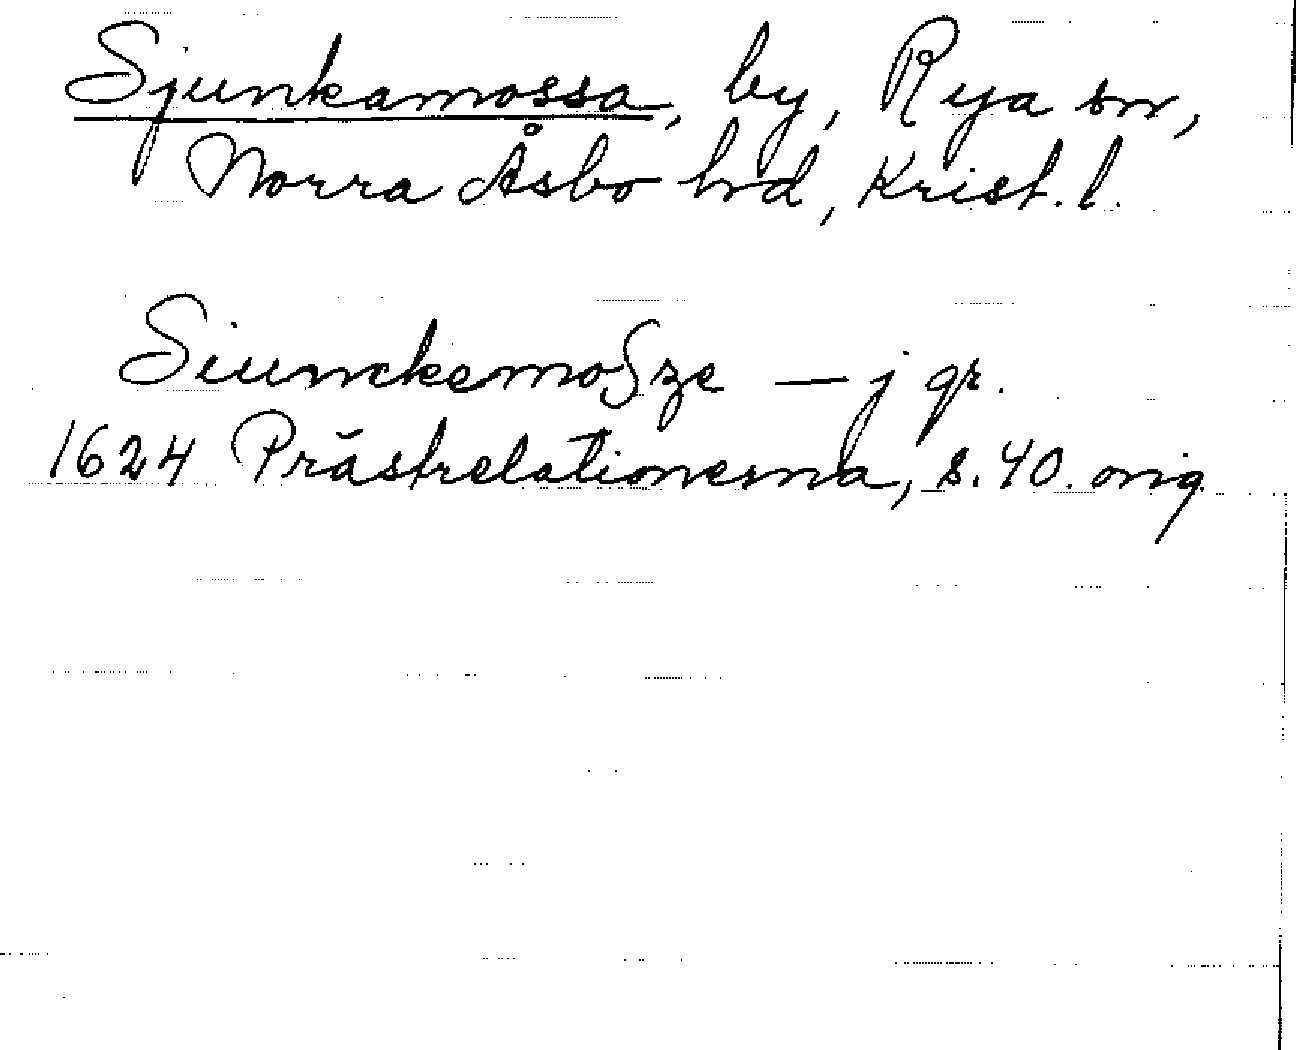 Sjunkamossa, by, Rya sn,
Norra Åsbo hd, Krist. l.
Siunckemoſze — j gr.
1624 Prästrelationerna, s. 40. orig